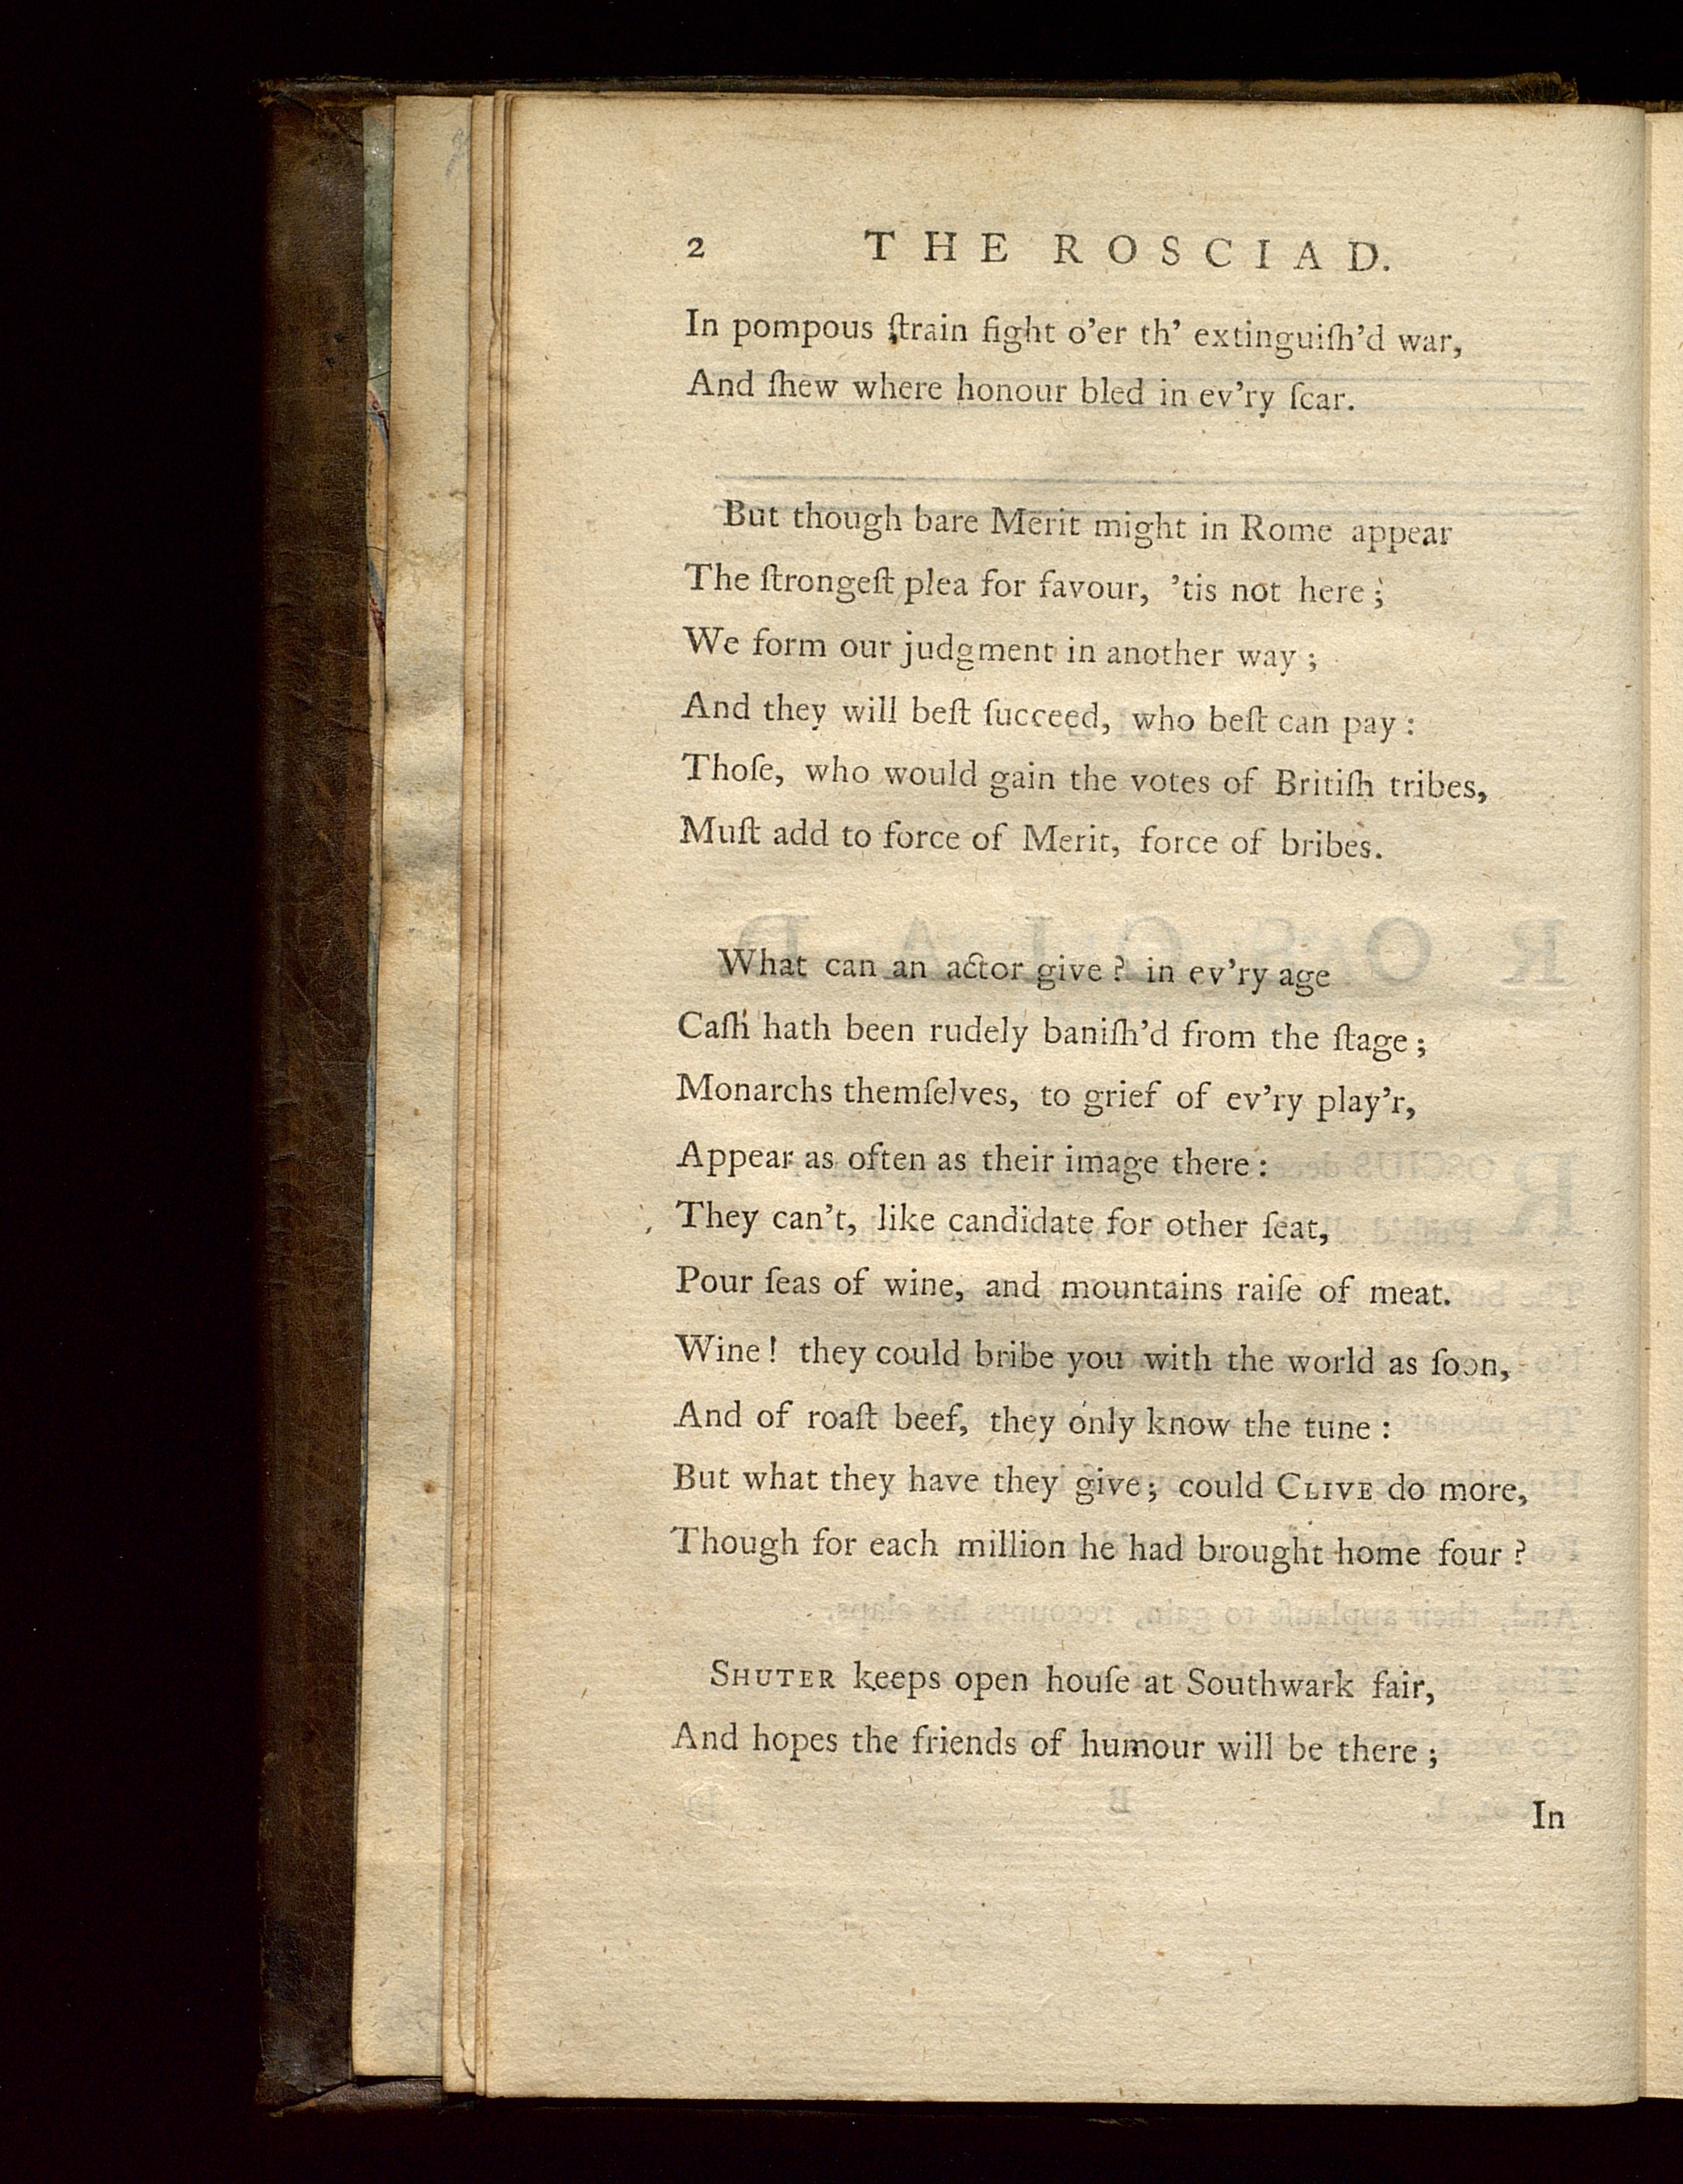 2 THE ROSCIAD.
In pompous ſtrain fight o'er th' extinguiſh'd war,
And ſhew where honour bled in ev'ry ſcar.
But though bare Merit might in Rome appear
The ſtrongeſt plea for favour, 'tis not here;
We form our judgment in another way;
And they will beſt ſucceed, who beſt can pay:
Thoſe, who would gain the votes of Britiſh tribes,
Muſt add to force of Merit, force of bribes.
What can an actor give? in ev'ry age
Caſh hath been rudely baniſh'd from the ſtage;
Monarchs themſelves, to grief of ev'ry play'r,
Appear as often as their image there:
They can't, like candidate for other ſeat,
Pour ſeas of wine, and mountains raiſe of meat.
Wine! they could bribe you with the world as ſoon,
And of roaſt beef, they only know the tune:
But what they have they give; could CLIVE do more,
Though for each million he had brought home four?
SHUTER keeps open houſe at Southwark fair,
And hopes the friends of humour will be there;
In